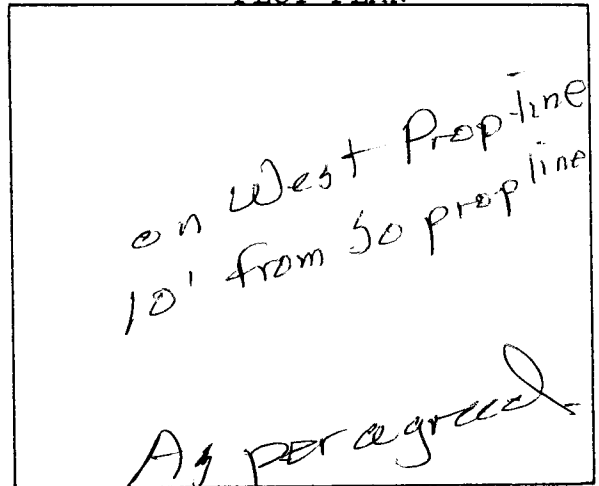 PLOT PLAN
on West Prop line
10' from So prop line
As per agreed